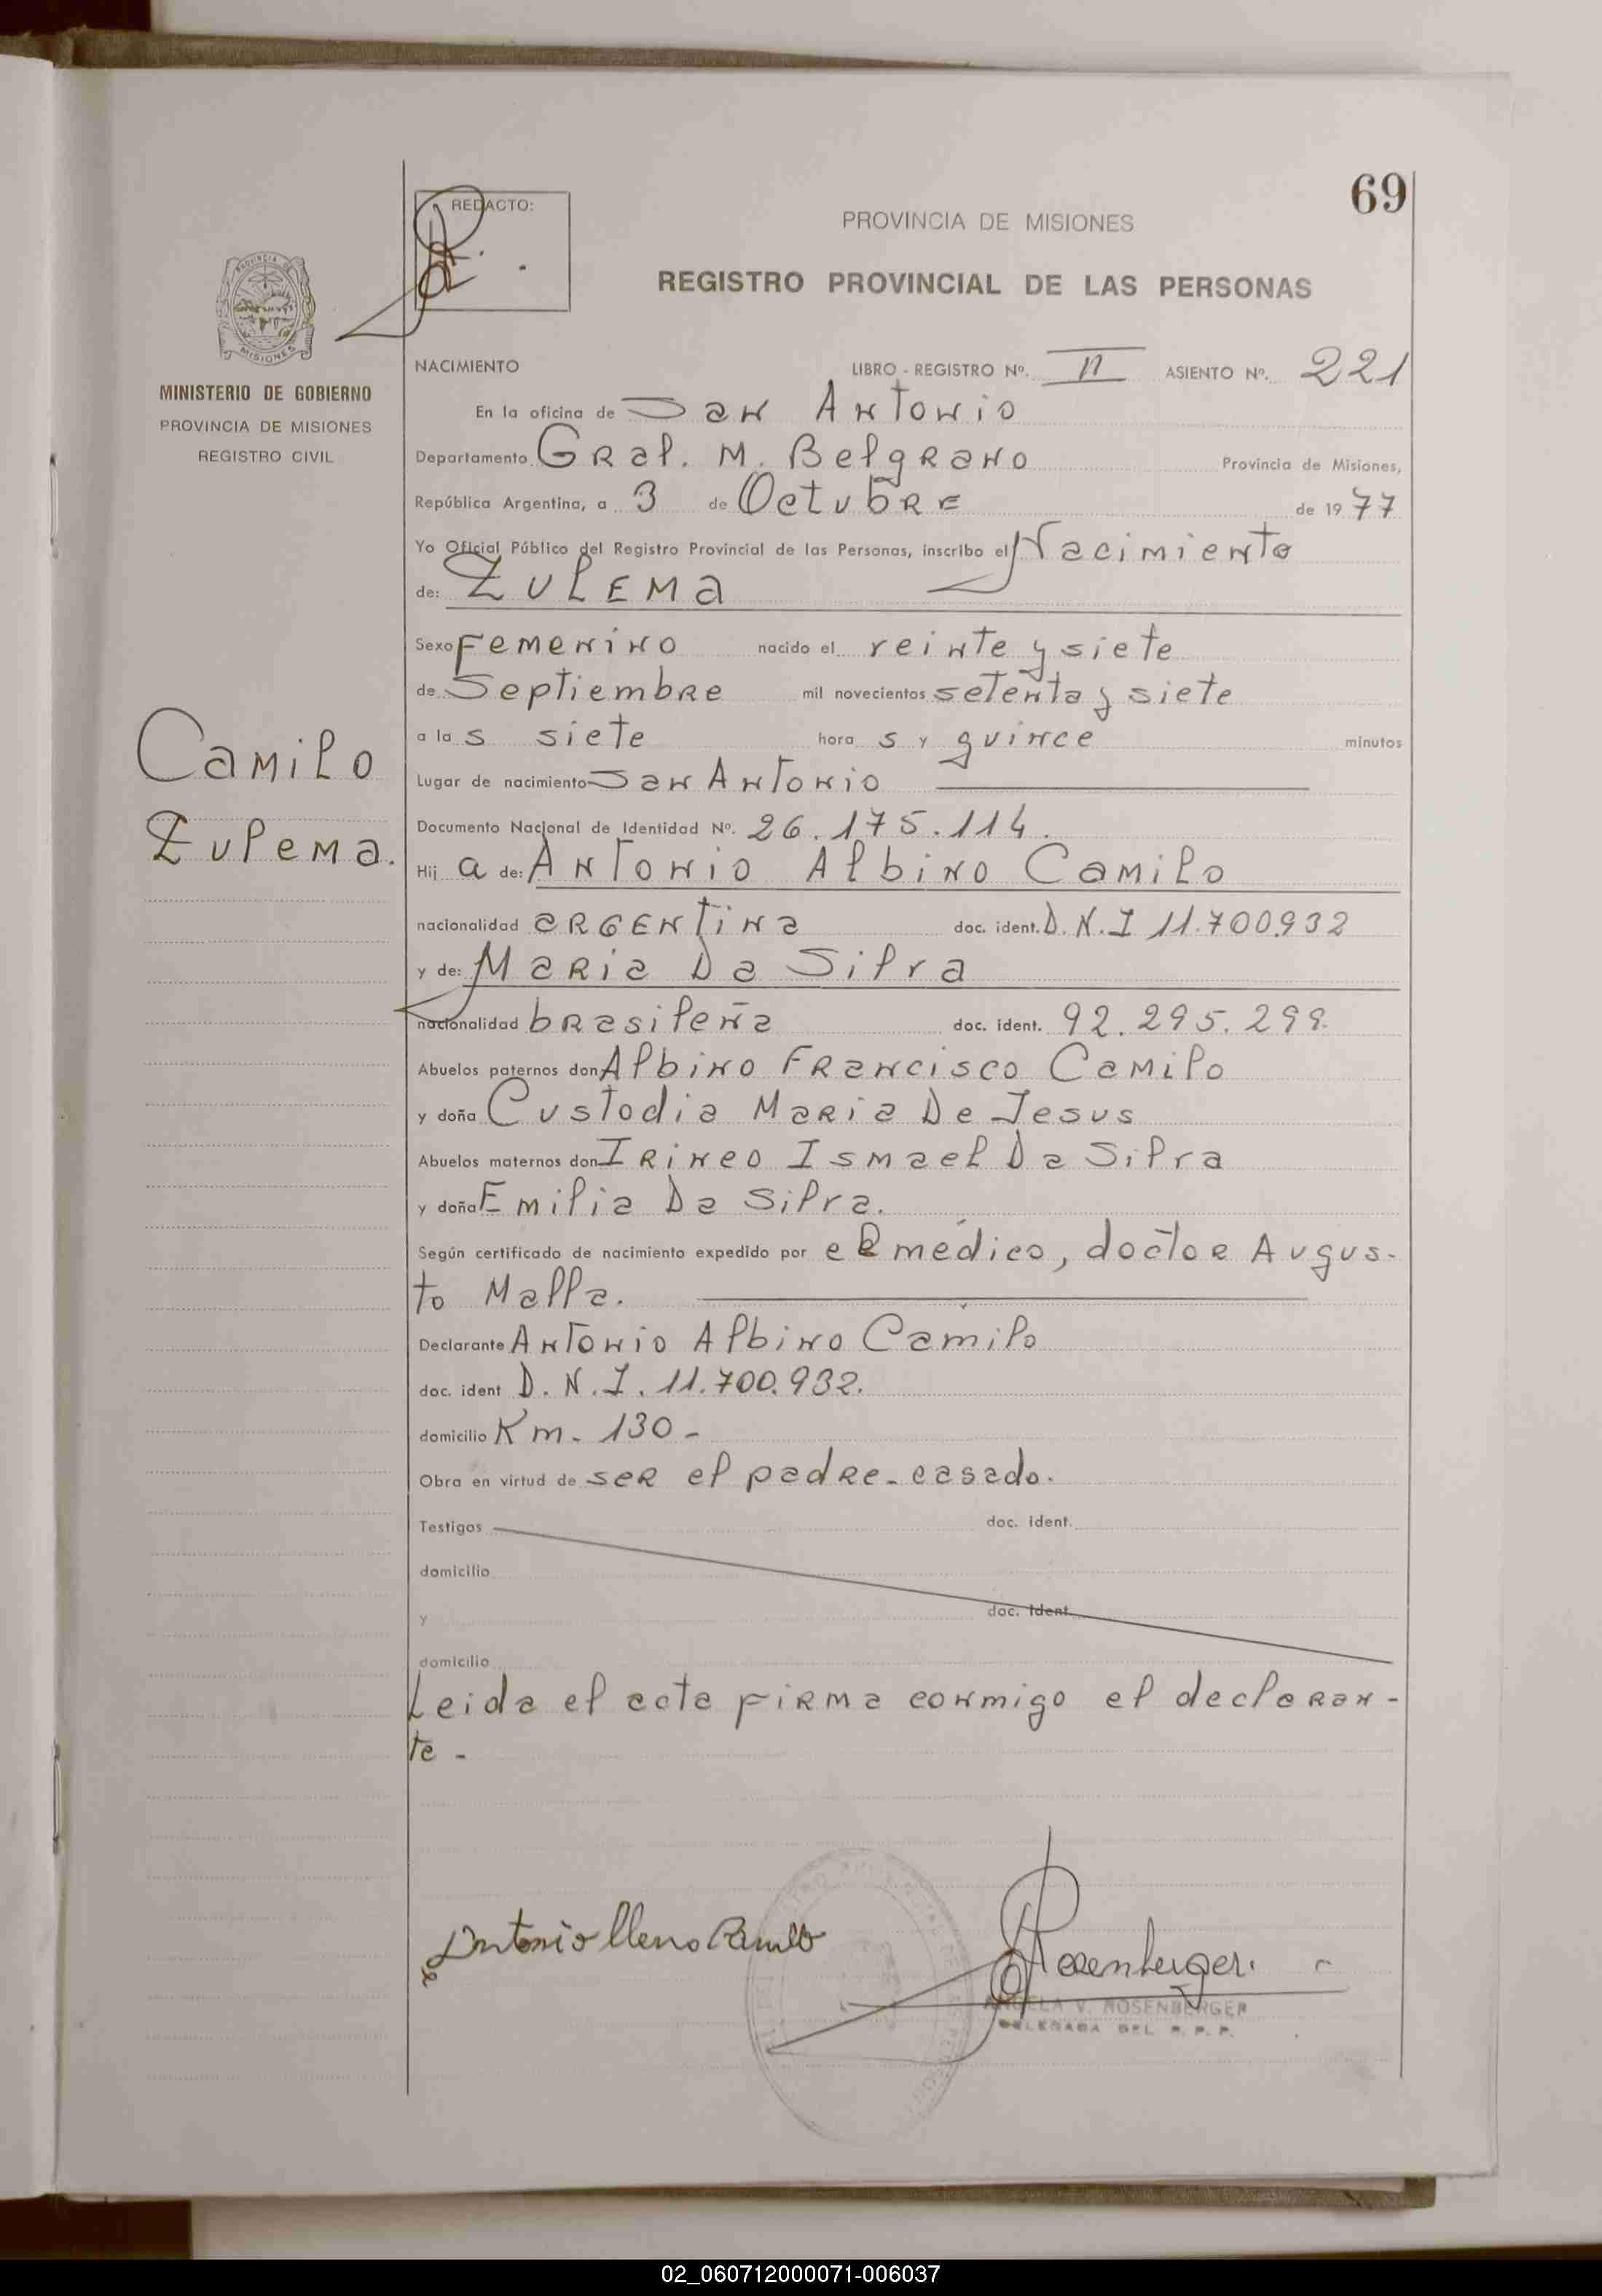 69
REDACTO:
PROVINCIA DE MISIONES
REGISTRO PROVINCIAL DE LAS PERSONAS
MISIONES
MINISTERIO DE GOBIERNO
PROVINCIA DE MISIONES
REGISTRO CIVIL
NACIMIENTO LIBRO - REGISTRO Nº. II ASIENTO Nº. 221
En la oficina de San Antonio
Departamento Gral. M. Belgrano Provincia de Misiones,
República Argentina, a 3 de Octubre de 1977
Yo Oficial Público del Registro Provincial de las Personas, inscribo el Nacimiento
de: Zulema
Sexo Femenino nacido el veinte y siete
de Septiembre mil novecientos setenta y siete
a las siete horas y quince minutos
Camilo
Zulema.
Lugar de nacimiento San Antonio
Documento Nacional de Identidad Nº. 26.175.114.
Hija de: Antonio Albino Camilo
nacionalidad argentina doc. ident. D.N.I 11.700.932
y de: Maria Da Silva
nacionalidad brasileña doc. ident. 92.295.299.
Abuelos paternos don Albino Francisco Camilo
y doña Custodia Maria De Jesus
Abuelos maternos don Irineo Ismael Da Silva
y doña Emilia Da Silva.
Según certificado de nacimiento expedido por el médico, doctor Augus-
to Malla.
Declarante Antonio Albino Camilo
doc. ident D.N.I. 11.700.932.
domicilio Km. 130 -
Obra en virtud de ser el padre - casado.
Testigos doc. ident.
domicilio
y doc. ident.
domicilio
Leida el acta firma conmigo el declaran-
te -
Antonio
Rosenberger.
ANGELA V. ROSENBERGER
DELEGADA DEL R. P. P.
02_060712000071-006037